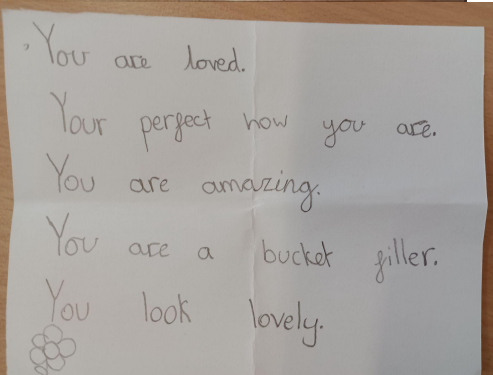 You are loved.
Your perfect how you are.
You are amazing.
You are a bucket filler.
You look lovely.